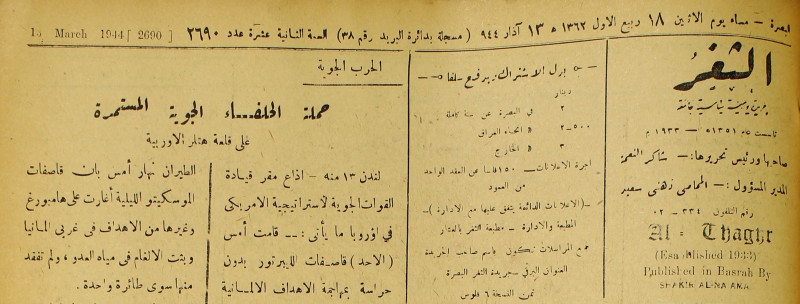 البصرة – مساء يوم الاثنين ١٨ ربيع الاول ١٣٦٢ ه ١٣ آذار ٩٤٤ (مسجلة بدائرة البريد رقم ٣٨) السنة الثانية عشرة عدد ٢٦٩٠
13 March 1944 [2690]
الثغر
جريدة يومية سياسية جامعة
تأسست عام ١٣٥١ ه – ١٩٣٣ م
صاحبها ورئيس تحريرها:– شاكر النعمة
المدير المسؤول:– المحامي زهني سعيد
رقم التلفون ٢٣٤ – ٠٢
Al - Thaghr
(Esatblished 1933)
Published in Basrah By
SHAKIR AL-NAAMA
بدل الاشتراك يدفع سلفا
دينار
٢ في البصرة عن سنة كاملة
٢–٥٠٠ « انحاء العراق
٣ « الخارج
اجرة الاعلانات – ١٥٠ فلسا عن العقد الواحد
من العمود
–(الاعلانات الدائمة يتفق عليها مع الادارة)–
المطبعة والادارة – مطبعة الثغر بالعشار
جميع المراسلات تكون باسم صاحب الجريدة
العنوان البرقي – جريدة الثغر البصرة
ثمن النسخة ٦ فلوس
الحرب الجوية
حملة الحلفاء الجوية المستمرة
على قلعة هتلر الاوربية
لندن ١٣ منه – اذاع مقر قيادة
القوات الجوية الاستراتيجية الامريكي
في اوروبا ما يأتى:– قامت أمس
(الاحد) قاصفات الليبرتور بدون
حراسة بمهاجمة الاهداف الالمانية
الطيران نهار أمس بان قاصفات
الموسكيتو الليلية أغارت على هامبورغ
وغيرها من الاهداف في غربي المانيا
وبثت الالغام فى مياه العدو، ولم تفقد
منها سوى طائرة واحدة.